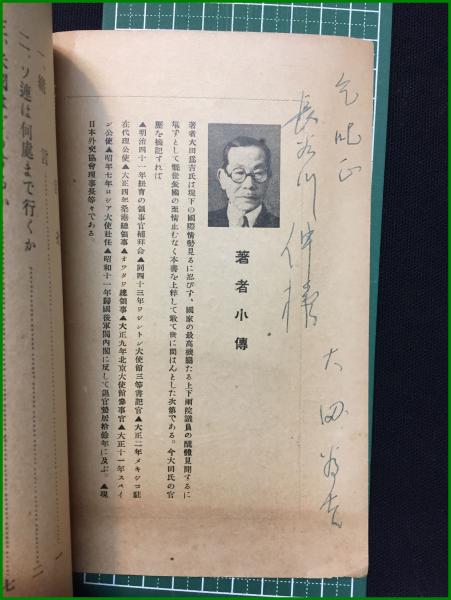 乞叱正
長谷川伸様
大田為吉
著者小傳
著者大田爲吉氏は現下の國際情勢見るに忍びず、國家の最高機關たる上下兩院議員の醜態見聞するに
堪ずとして憂世愛國の至情止むなく本書を上梓して敢て世に問はんとした次第である。今大田氏の官
歷を摘記すれば
▲明治四十一年紐育の領事官補拜命▲同四十三年ワシントン大使館三等書記官▲大正二年メキシコ駐
在代理公使▲大正四年桑港總領事▲オツタワ總領事▲大正九年北京大使館參事官▲大正十一年スペイ
ン公使▲昭和七年ロシア大使赴任▲昭和十一年歸國後軍閥內閣に反して退官蟄居拾餘年に及ぶ。▲現
日本外交協會理事長等々である
一、緖言 一
二、ソ連は何處まで行くか 二
七